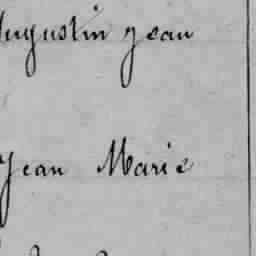 Augustin Jean
Jean Marie